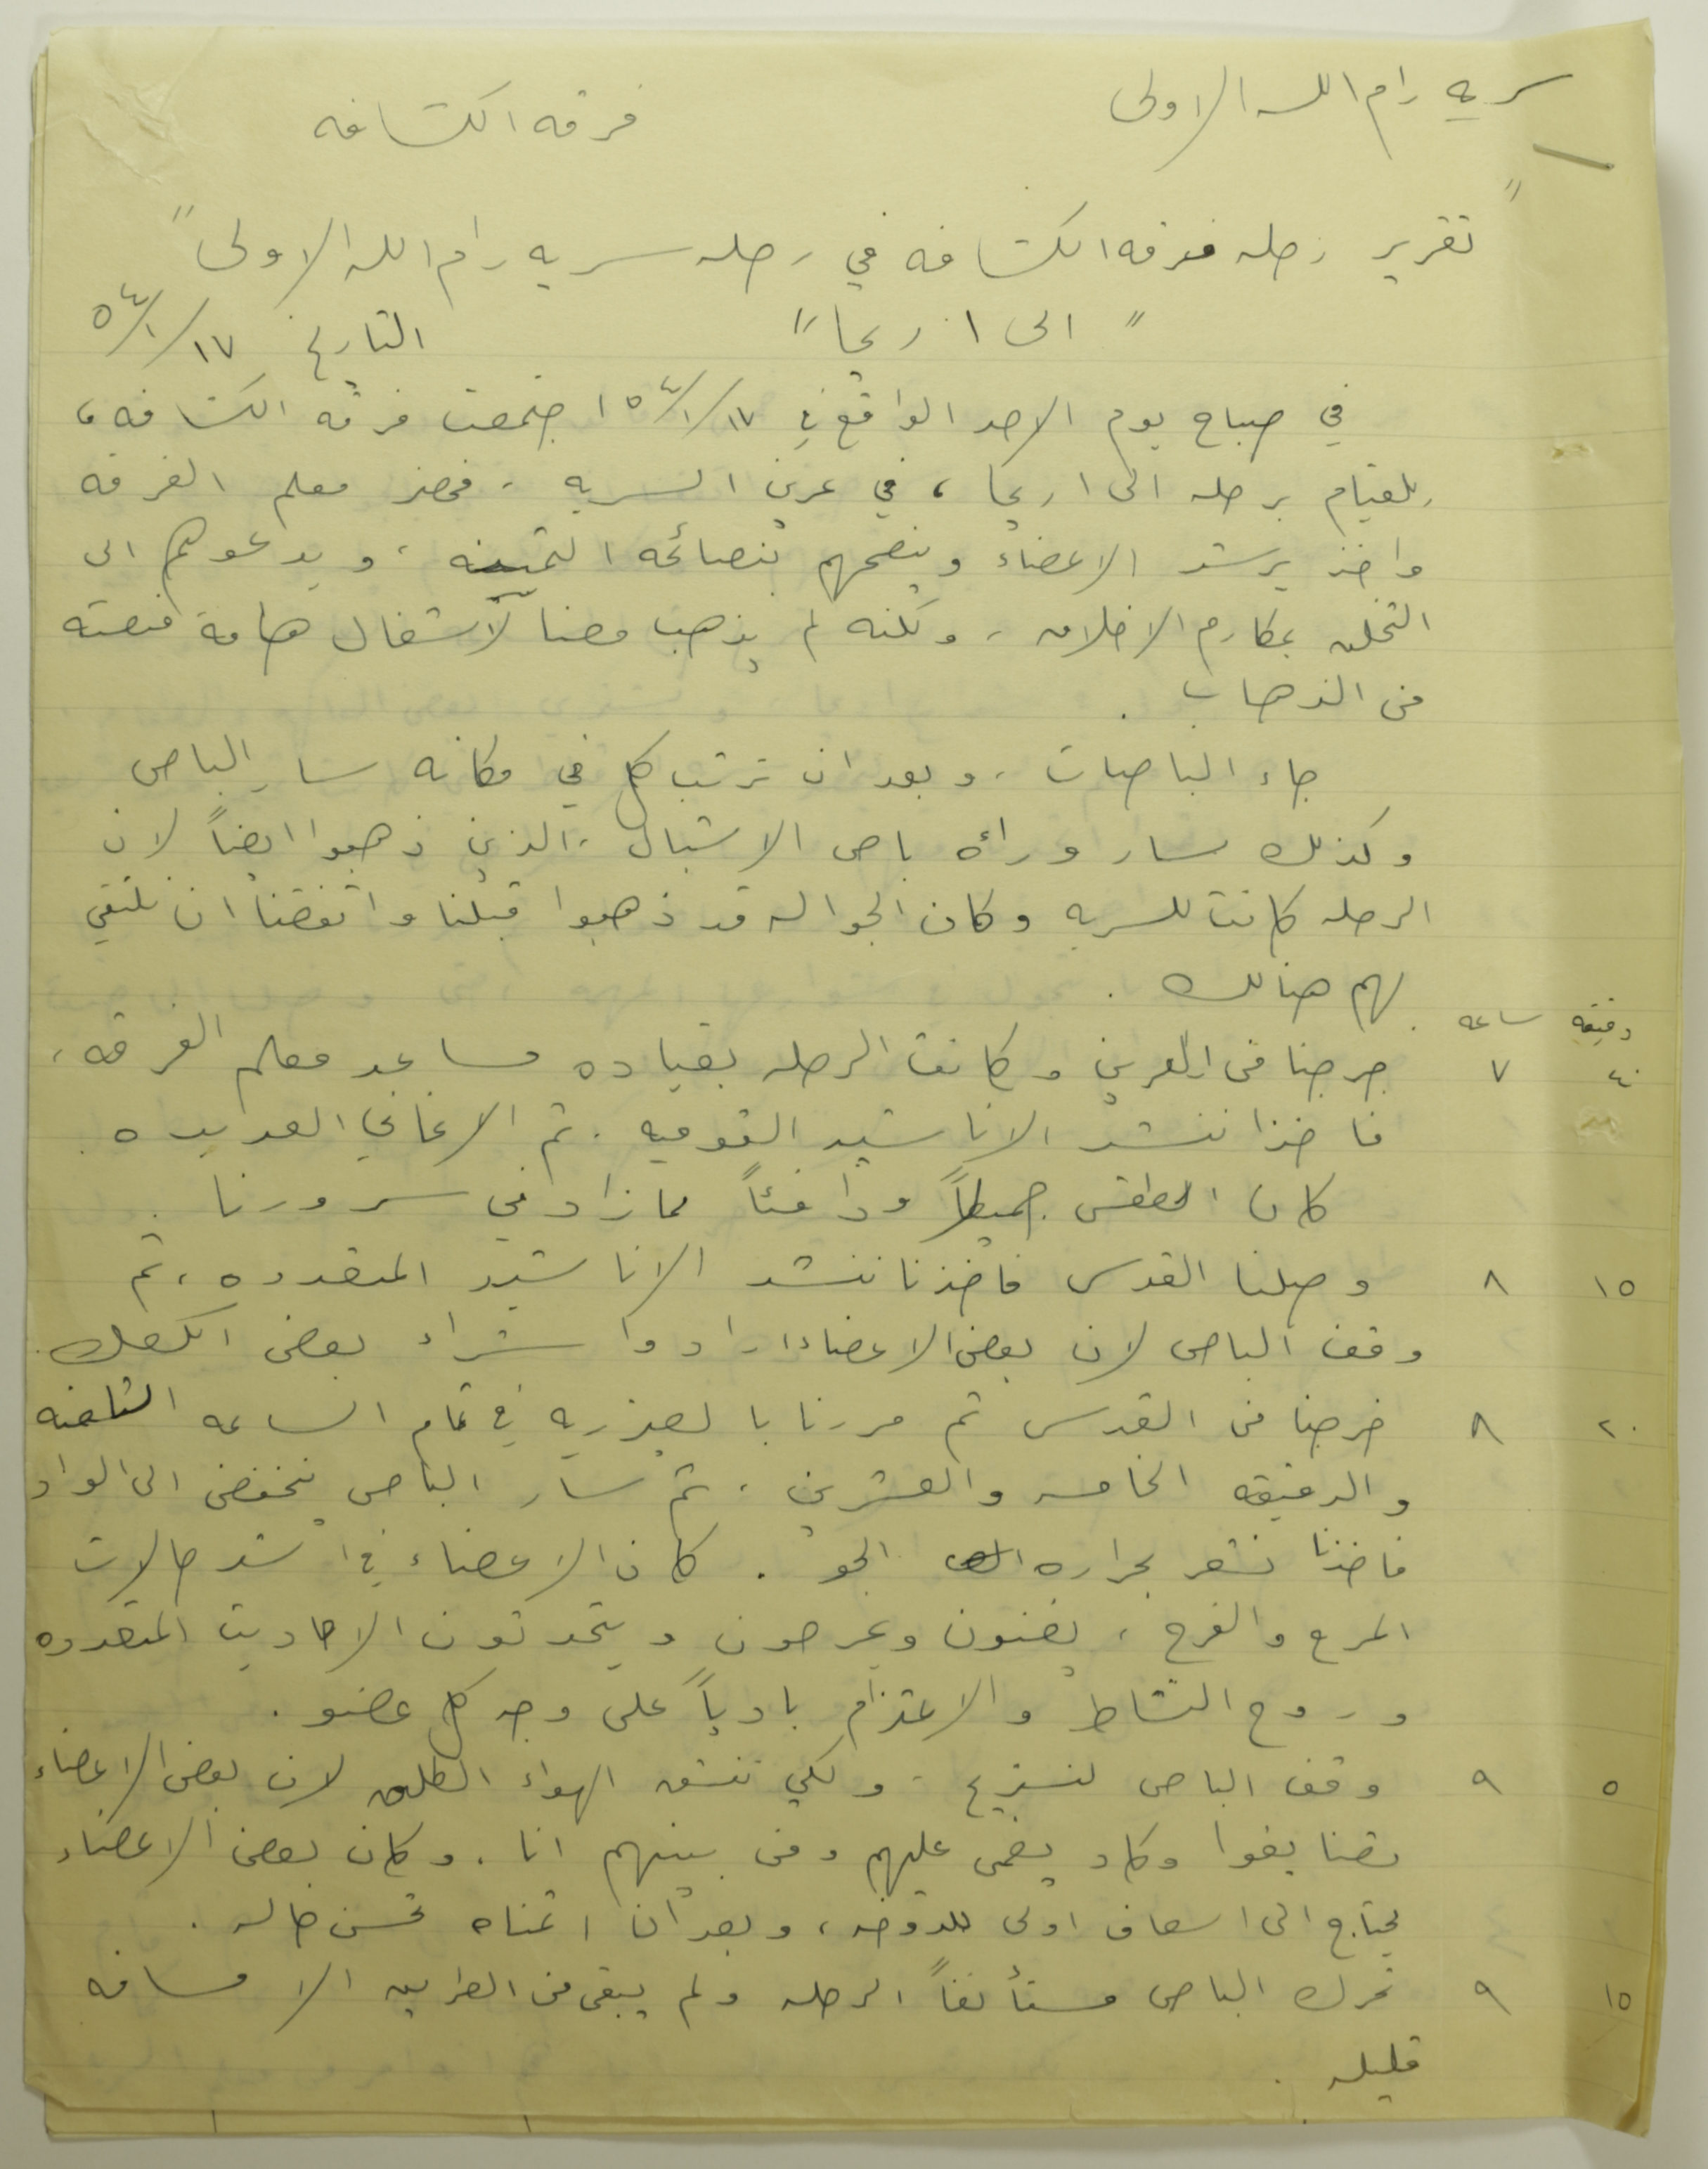 سريه رام الله الاولى
فرقه الكشافه
" تقرير رحله فرقه الكشافه في رحله سريه رام الله الاولى "
" الى اريحا " التاريخ ١٧/١/٥٤
في صباح يوم الاحد الواقع في ١٧/١/٥٤ اجتمعت فرقه الكشافه ،
للقيام برحله الى اريحا ، في عرين السريه . فحضر معلم الفرقه
واخذ يرشد الاعضاء وينصحهم بنصائحه الثمينه ، ويدعوهم الى
التخلق بمكارم الاخلاق ، ولكنه لم يذهب معنا لأشغال هامة منعته
من الذهاب .
جاء الباصات ، وبعد ان ترتب كل في مكانه سار الباص
وكذلك سار وراءه باص الاشبال ، الذين ذهبوا ايضاً لان
الرحله كانت للسريه وكان الجواله قد ذهبوا قبلنا واتفقنا ان نلتقي
بهم هنالك .
دقيقه ساعه
٤٠ ٧ خرجنا من العرين وكانت الرحله بقياده مساعد معلم الفرقه ،
فاخذنا ننشد الاناشيد القوميه . ثم الاغاني العديده .
كان الطقس جميلاً ودافئاً مما زاد في سرورنا .
١٥ ٨ وصلنا القدس فاخذنا ننشد الاناشيد المتعدده ، ثم
وقف الباص لان بعض الاعضاء ارادوا شراء بعض الكعك .
٢٠ ٨ خرجنا من القدس ثم مررنا بالعيزريه في تمام الساعه الثامنه
والدقيقه الخامسه والعشرين . ثم سار الباص ينخفض الى الواد
فاخذنا نشعر بحراره الجو . كان الاعضاء في اشد حالات
المرح والفرح ، يغنون ويمرحون ويتحدثون الاحاديث المتعدده
وروح النشاط والاعتزام بادياً على وجه كل عضو .
٥ ٩ وقف الباص لنستريح . ولكي ننشق الهواء الطلق لان بعض الاعضاء
تضايقوا وكاد يغمى عليهم ومن بينهم انا . وكان بعض الاعضاء
يحتاج الى اسعاف اولى للدوخه ، وبعد ان اتممناه تحسن حاله .
١٥ ٩ تحرك الباص مستأنفاً الرحله ولم يبقى من الطريق الا مسافه
قليله .